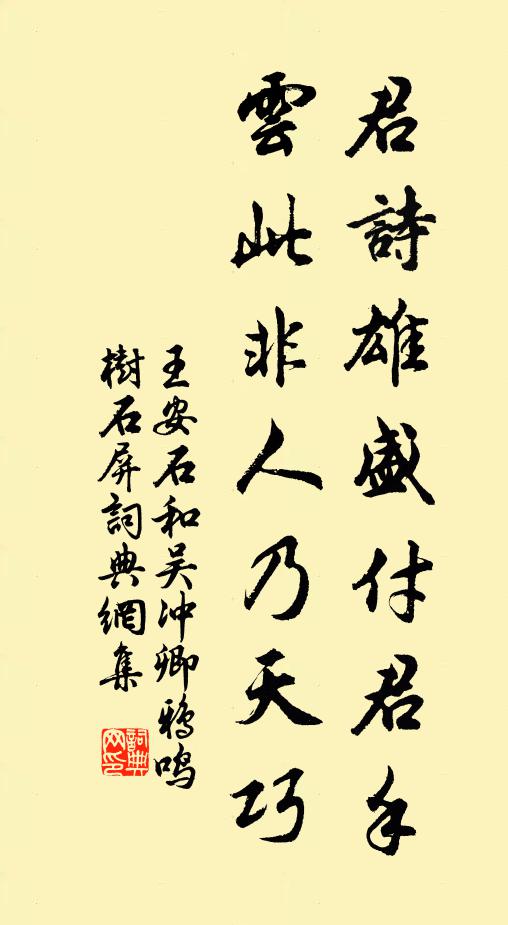 君詩雄盛付君手
雲此非人乃天巧
王安石和吴沖卿鴉鳴
樹石屏詞典網集
詞典
网印